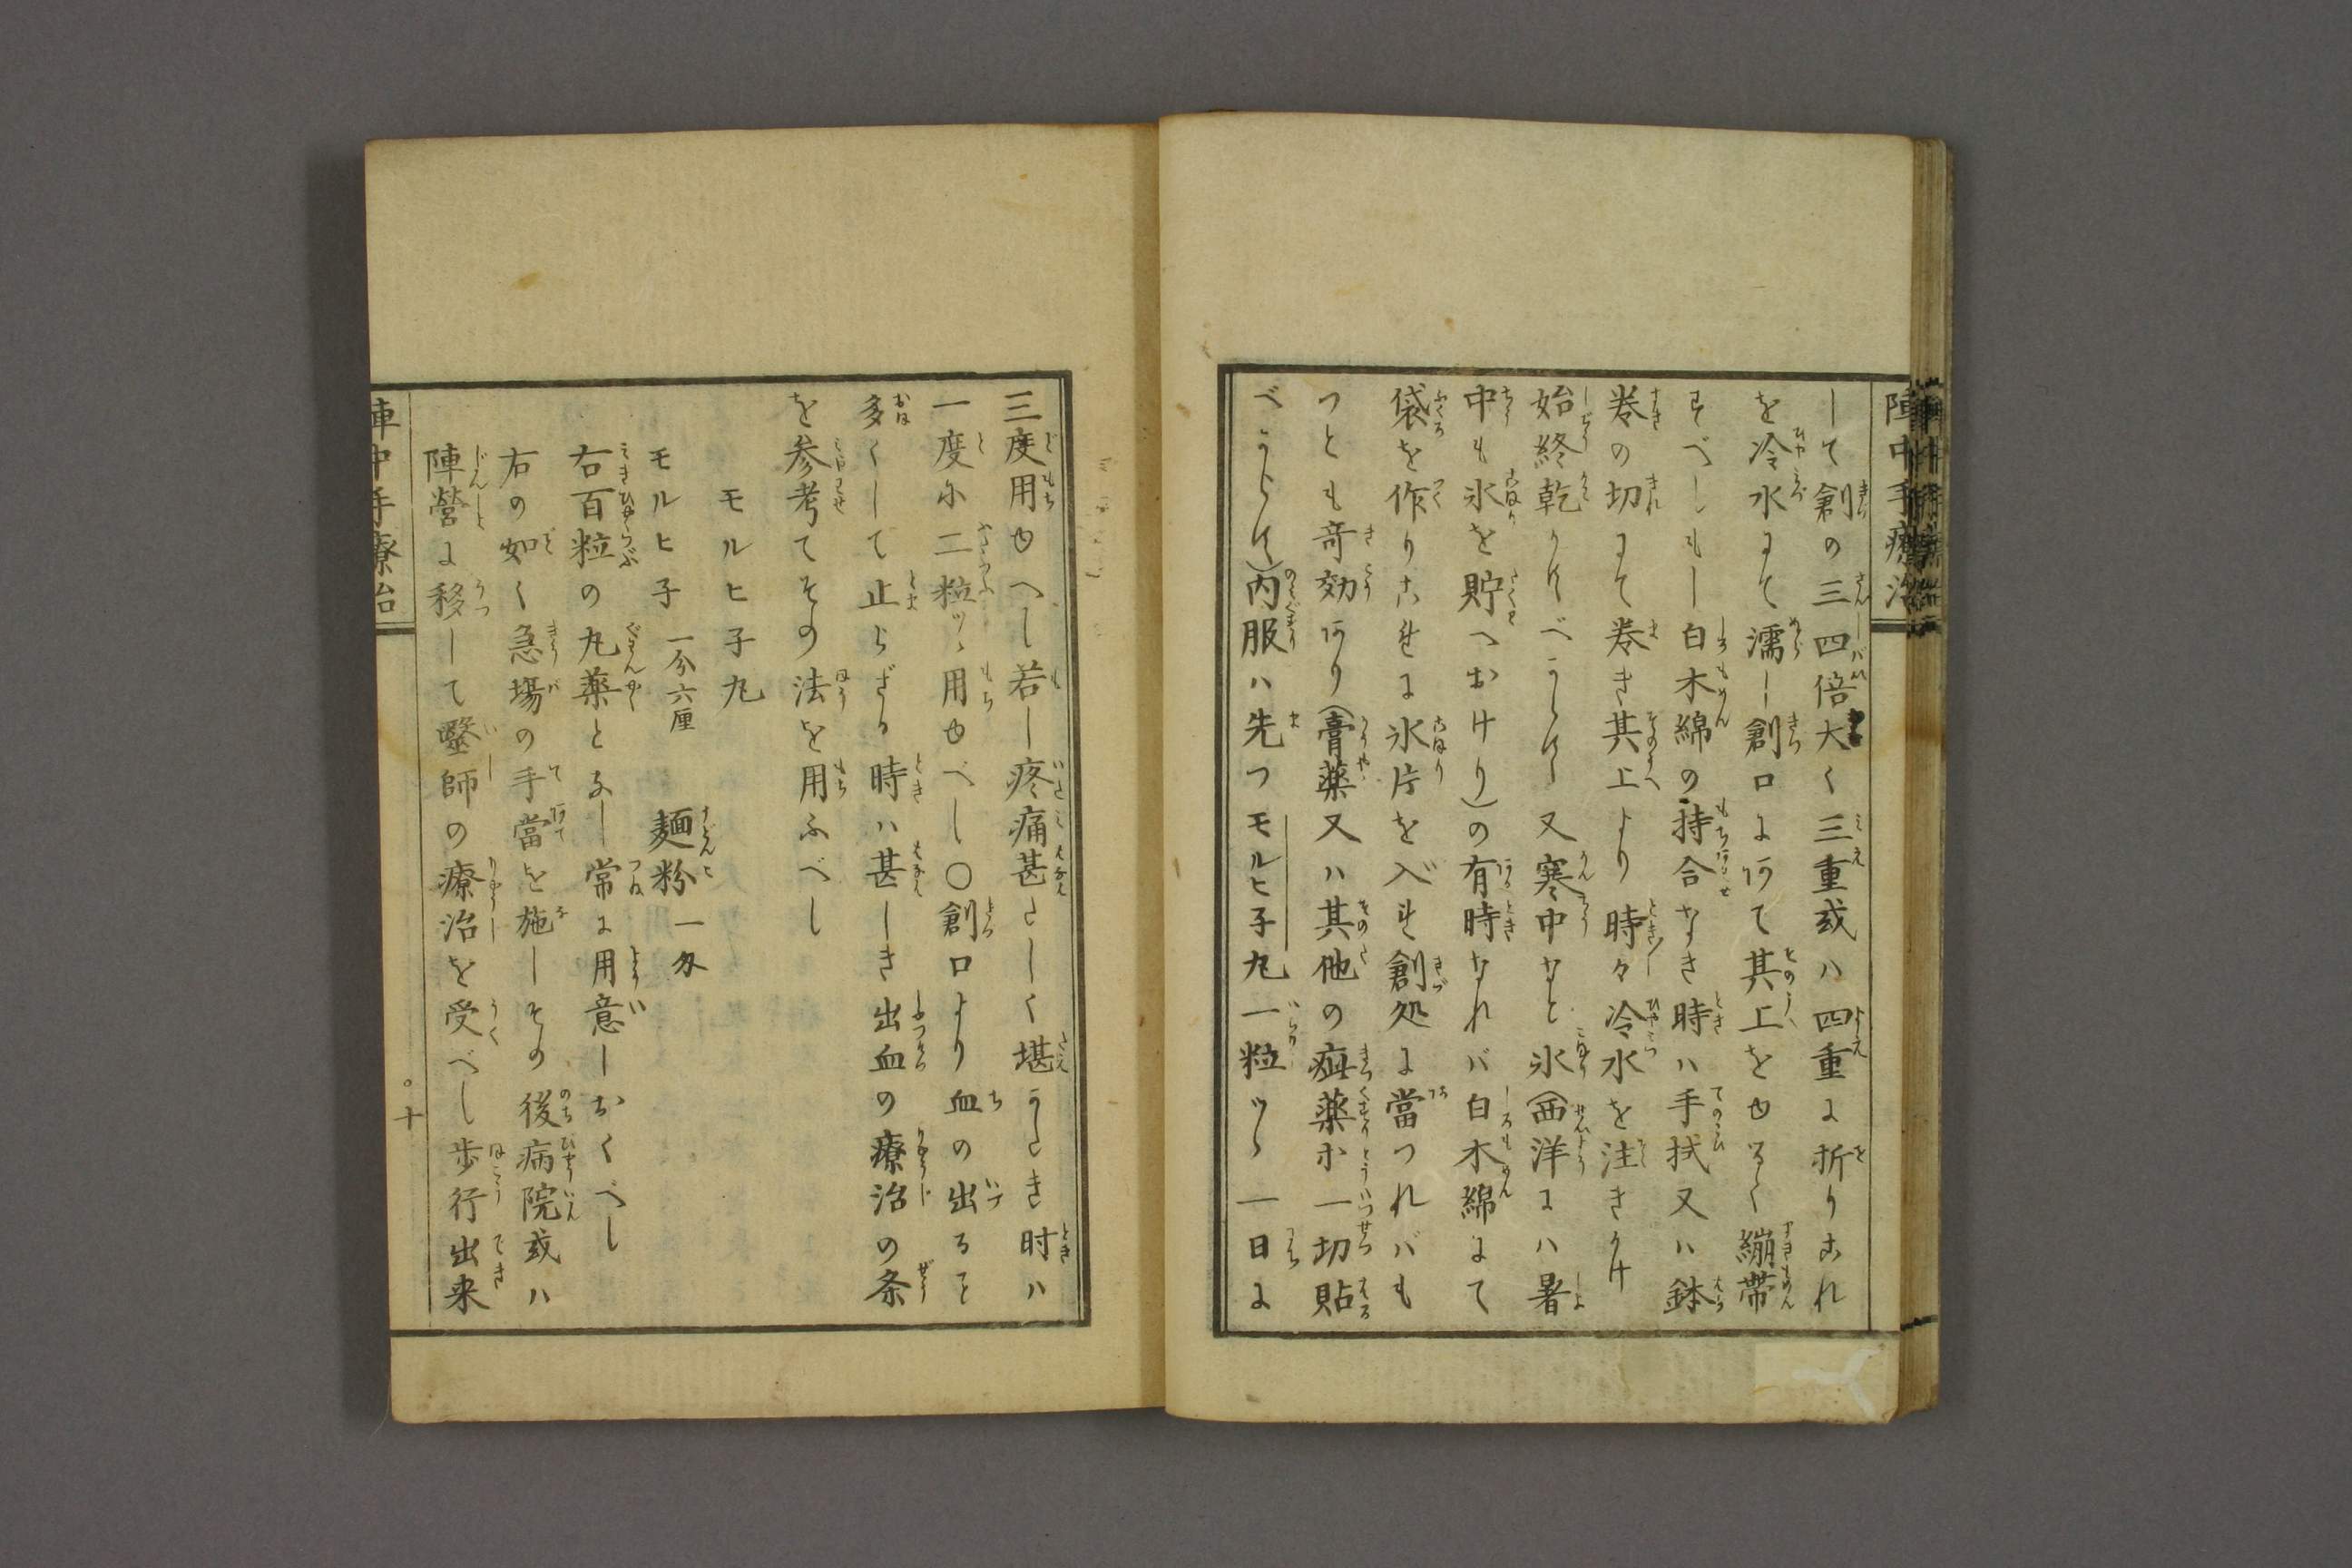 陣中手療治
して創の三四倍大く三重或ハ四重に折りこれ
を冷水にて濡し創口にあて其上をゆるく繃帯
すべしもし白木綿の持合なき時ハ手拭又ハ鉢
巻の切にて巻き其上より時々冷水を注きかけ
始終乾かぬべからず又寒中なと氷(西洋にハ暑
中も氷を貯へおけり)の有時なれバ白木綿にて
袋を作りこれに氷片を入れ創処に當つれバも
つとも奇効あり(膏薬又ハ其他の疵薬ホ一切貼
べからず)内服ハ先つモルヒ子丸一粒ツヽ一日に
三度用ゆへし若し疼痛甚さしく堪がたき时ハ
一度に二粒ツヽ用ゆべし〇創口より血の出るを
多くして止らざる時ハ甚しき出血の療治の条
を参考てその法を用ふべし
モルヒ子丸
モルヒ子 一分六厘 麺粉 一匁
右百粒の丸薬となし常に用意しおくべし
右の如く急場の手當を施しその後病院或ハ
陣營に移して醫師の療治を受べし歩行出来
陣中手療治
〇十